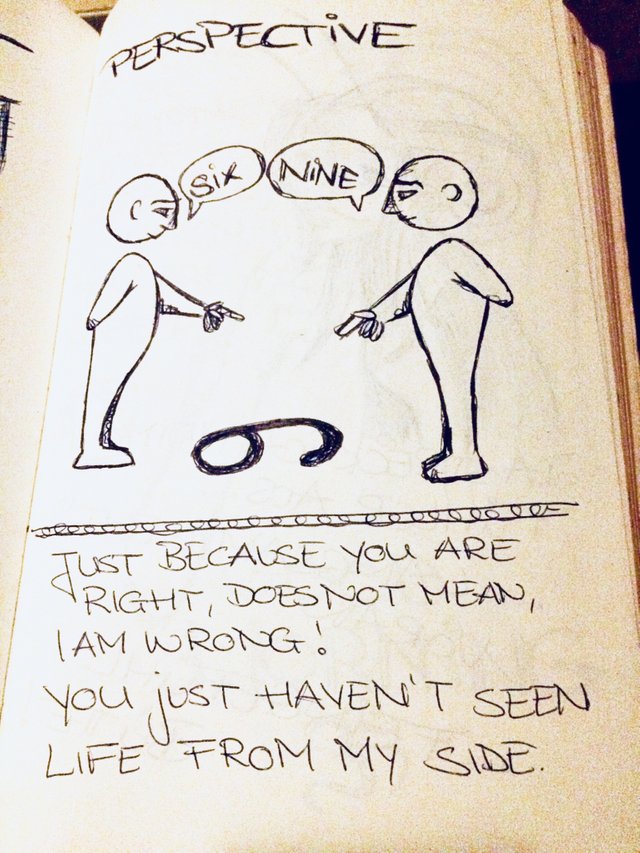 PERSPECTIVE
SIX
NINE
6
JUST BECAUSE YOU ARE
RIGHT, DOES NOT MEAN,
I AM WRONG!
YOU JUST HAVEN'T SEEN
LIFE FROM MY SIDE.